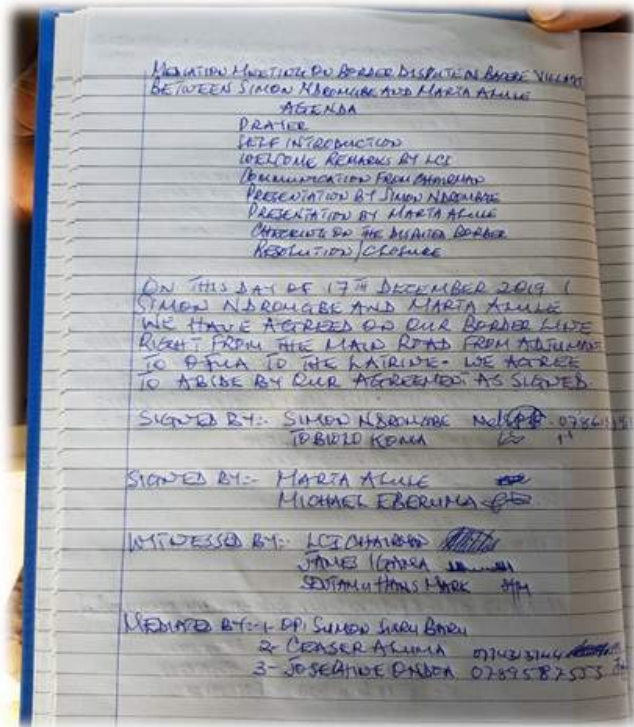 MEDIATION MEETING ON BORDER DISPUTE IN BADERE VILLAGE
BETWEEN SIMON NDROMGBE AND MARTA ALULE
AGENDA
PRAYER
SELF INTRODUCTION
WELCOME REMARKS BY LCI
COMMUNICATION FROM CHAIRMAN
PRESENTATION BY SIMON NDROMGBE
PRESENTATION BY MARTA ALULE
CHECKING ON THE DISPUTED BORDER
RESOLUTION/CLOSURE
ON THIS DAY OF 17TH DECEMBER 2019 I
SIMON NDROMGBE AND MARTA ALULE
WE HAVE AGREED ON OUR BORDER LINE
RIGHT FROM THE MAIN ROAD FROM ADJUMANI
TO OFUA TO THE LATRINE- WE AGREE
TO ABIDE BY OUR AGREEMENT AS SIGNED.
SIGNED BY:- SIMON NDROMGBE
TOBIOLO KOMA
SIGNED BY:- MARTA ALULE
MICHAEL EBERUMA
WITNESSED BY:- LCI CHAIRMAN
JAMES IGAMA
HANS MARK
MEDIATED BY:-1- SIMON BARU
2- CEASER ALUMA
3- JOSEPHINE 0789587555